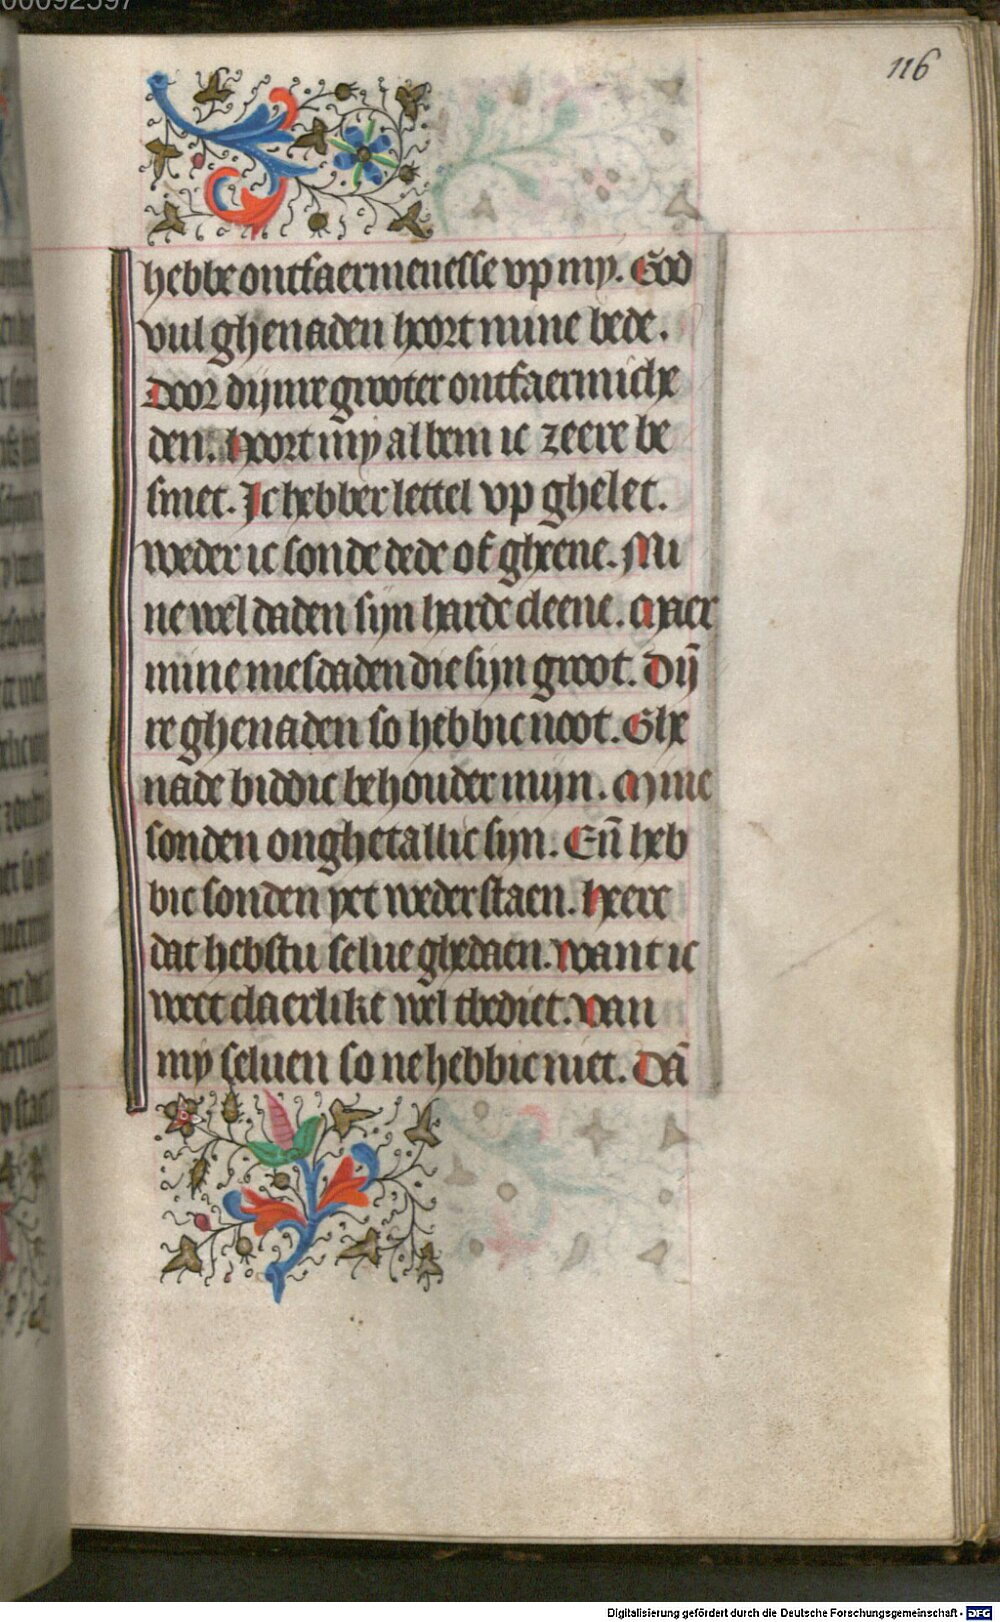 00092597
116
hebbe ontfaermenesse vp my. God
vul ghenaden hoort mine bede.
Door dijnre grooter ontfaermiche
den. Hoort my al bem ic zeere be
smet. Ic hebber lettel vp ghelet.
weder ic sonde dede of gheene. Mi
ne wel daden sijn harde cleene. Maer
mine mesdaden die sijn groot. Dij̄
re ghenaden so hebbic noot. Ghe
nade biddic behouder mijn. Mine
sonden onghetallic sijn. En̄ heb
bic sonden yet wederstaen. Heere
dat hebstu selue ghedaen. Want ic
weet claerlike wel tbediet. Van
my seluen so ne hebbic niet. Dā
Digitalisierung gefördert durch die Deutsche Forschungsgemeinschaft - DFG